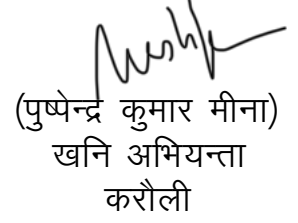 (पुष्पेन्द्र कुमार मीना)
खनि अभियन्ता
करौली